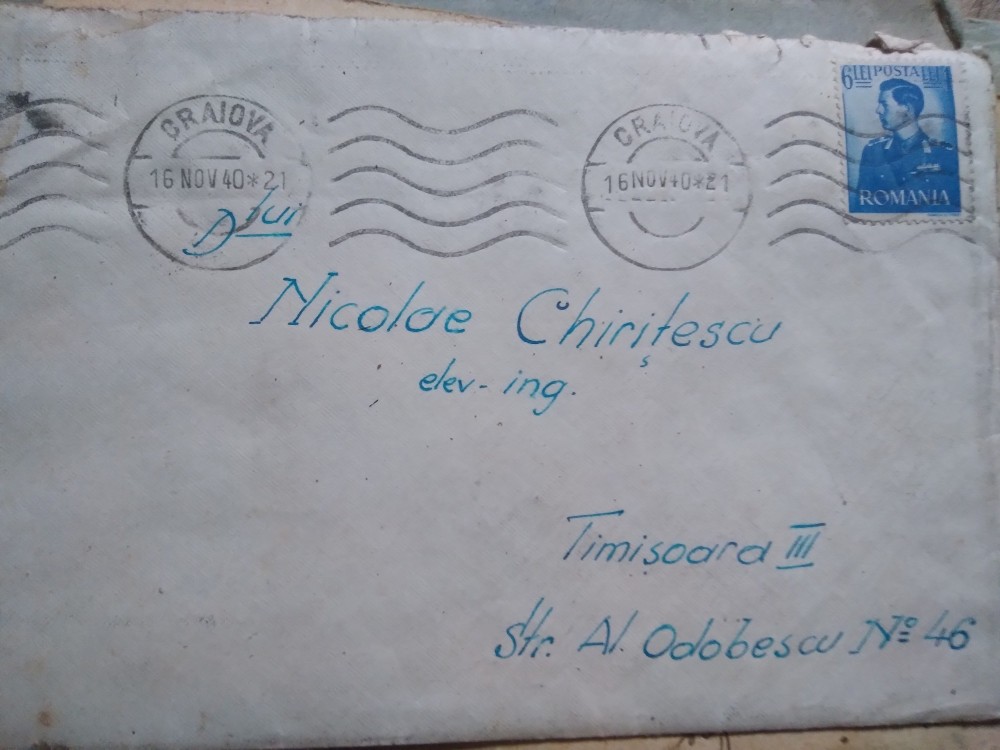 6 LEI POSTA LEI
ROMANIA
CRAIOVA
16 NOV 40 * 21
CRAIOVA
16 NOV 40 * 21
Dlui
Nicolae Chirițescu
elev - ing.
Timișoara III
Str. Al. Odobescu Nº 46